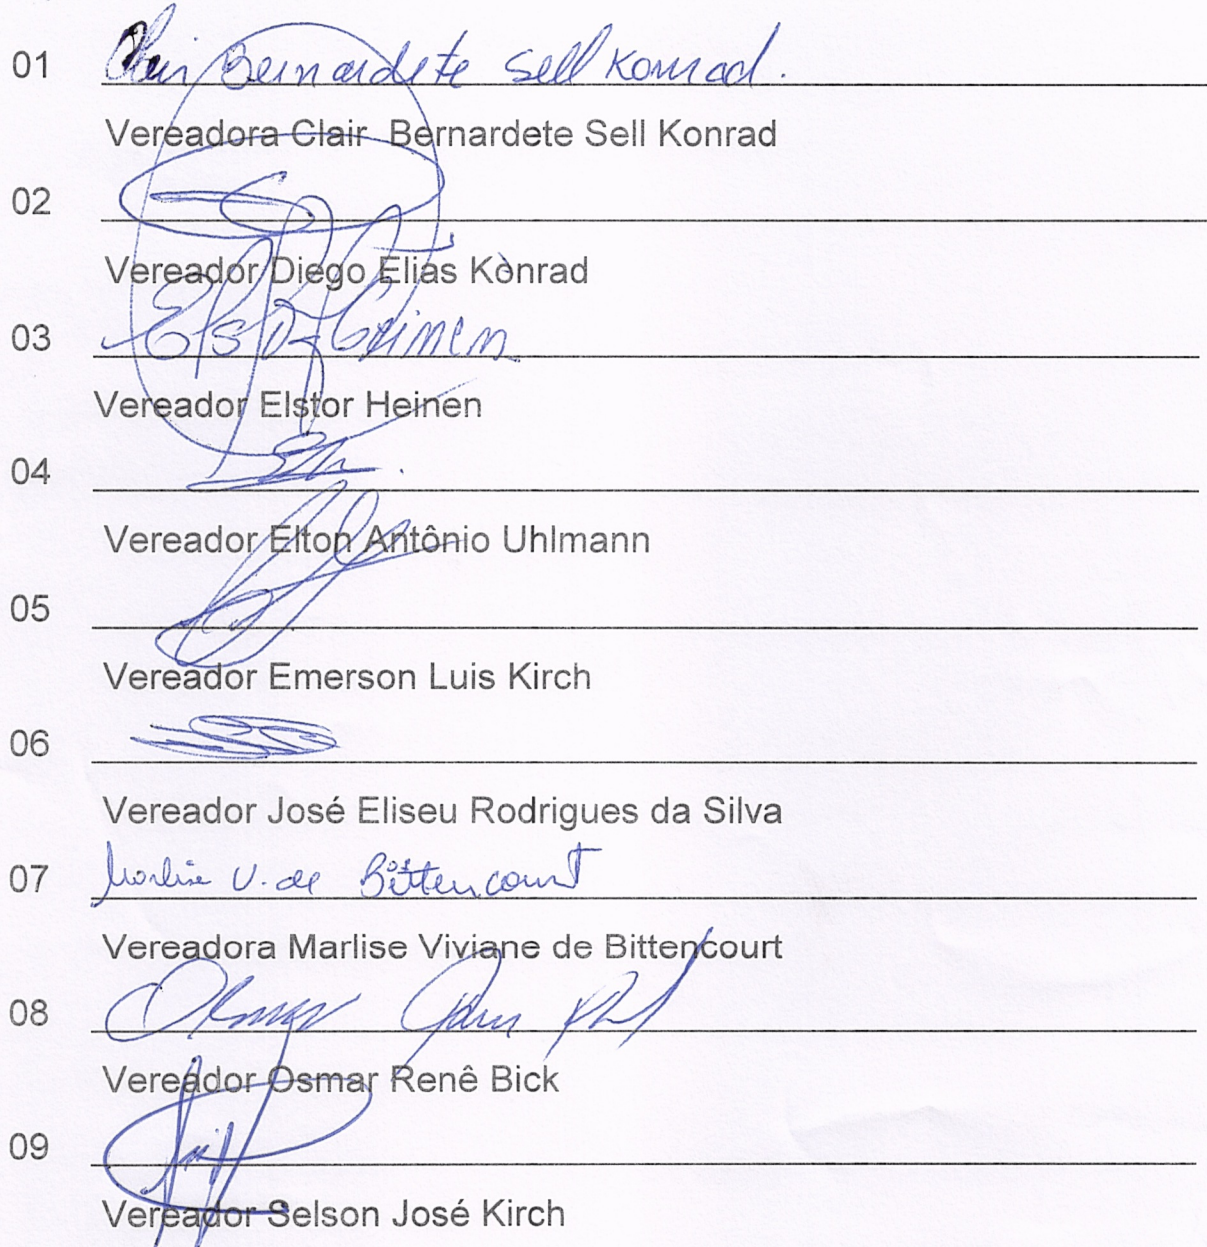 01 Clair Bernardete Sell Konrad.
Vereadora Clair Bernardete Sell Konrad
02
Vereador Diego Elias Konrad
03
Vereador Elstor Heinen
04
Vereador Elton Antônio Uhlmann
05
Vereador Emerson Luis Kirch
06
Vereador José Eliseu Rodrigues da Silva
07 Marlise V. de Bittencourt
Vereadora Marlise Viviane de Bittencourt
08 Osmar
Vereador Osmar Renê Bick
09
Vereador Selson José Kirch